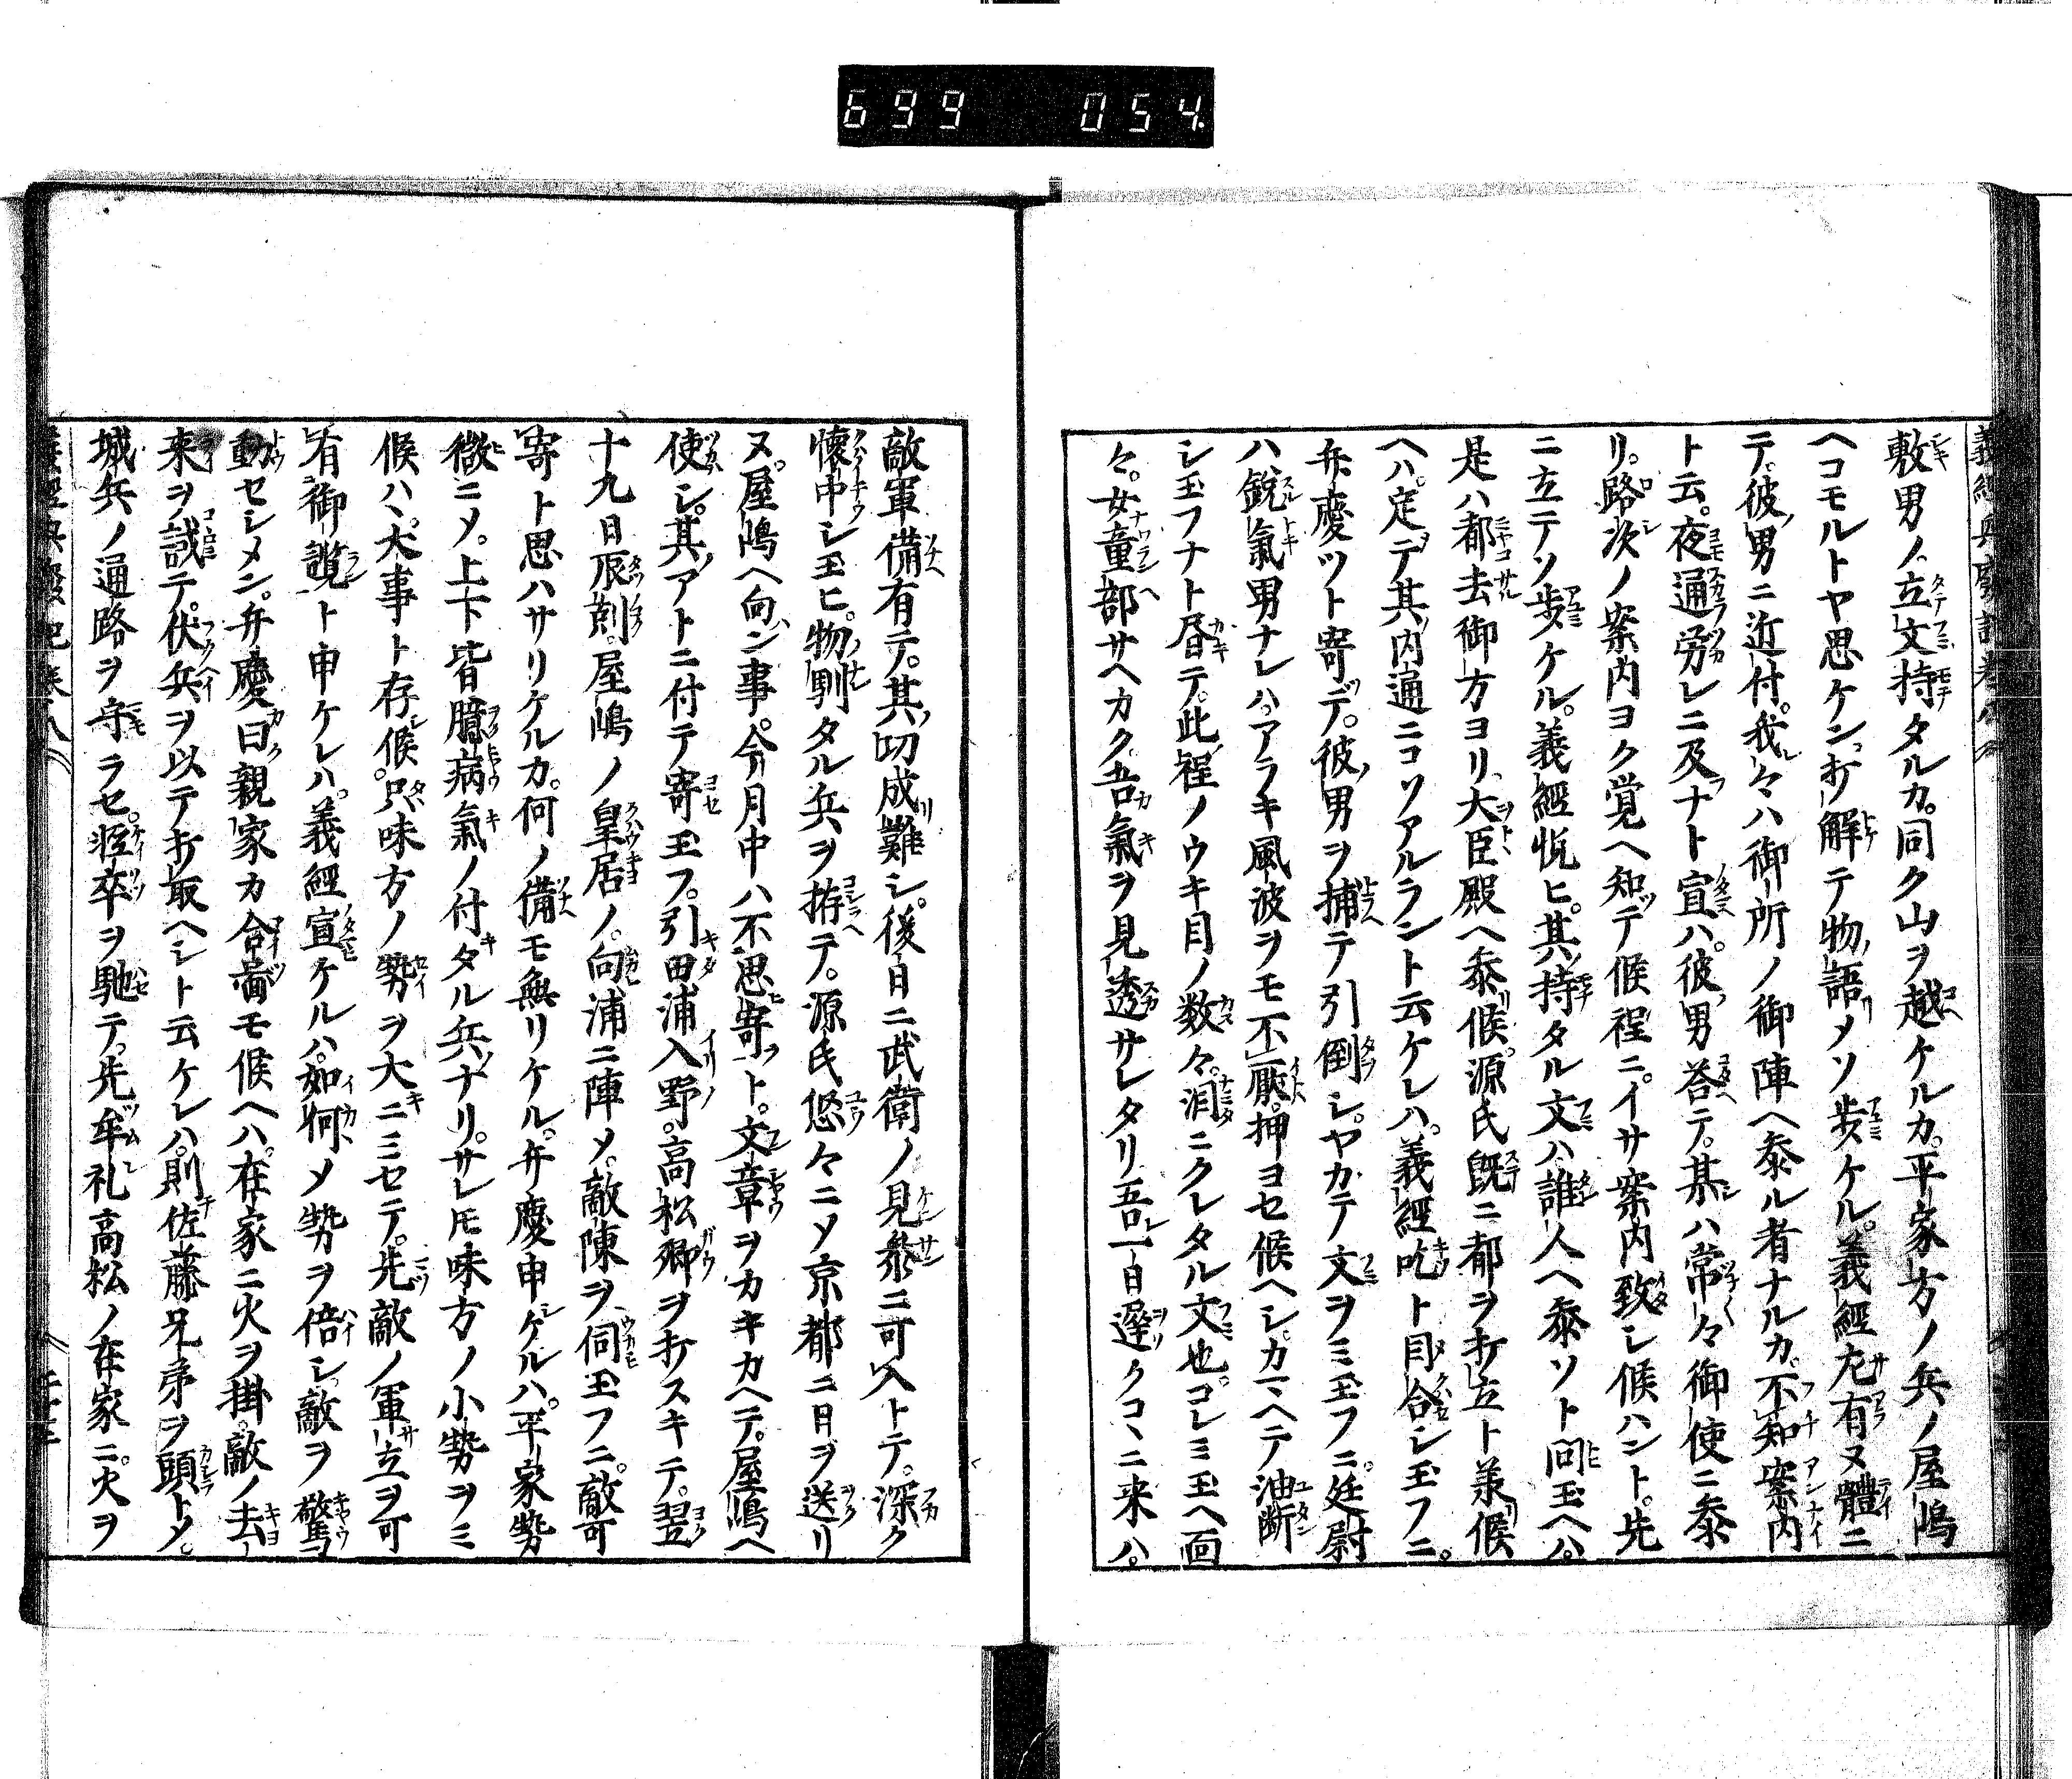 699 054
敷男ノ立文持タルカ。同ク山ヲ越ケルカ。平家方ノ兵ノ屋嶋
ヘコモルトヤ思ケン。打解テ物語メソ歩ケル。義經左有ヌ體ニ
テ。彼男ニ近付。我々ハ御所ノ御陣ヘ叅ル者ナルカ。不知案内
ト云。夜通労レニ及ナト宣ハ。彼男荅テ。某ハ常々御使ニ叅
リ。路次ノ案内ヨク覚ヘ知テ候程ニ。イサ案内致シ候ハント。先
ニ立テソ歩ケル。義經悦ヒ。其持タル文ハ誰人ヘ叅ソト問玉ヘハ。
是ハ都去御方ヨリ。大臣殿ヘ叅候。源氏既ニ都ヲ打立ト羕候
ヘハ。定テ其内通ニコソアルラント云ケレハ。義經吃ト目合シ玉フニ。
弁慶ツト寄テ。彼男ヲ捕テ引倒シ。ヤカテ文ヲミ玉フニ。廷尉
ハ鋭氣男ナレハ。アラキ風波ヲモ不厭。押ヨセ候ヘシ。カマヘテ油断
シ玉フナト㫺テ。此程ノウキ目ノ数々。泪ニクレタル文也。コレミ玉ヘ面
々。女童部サヘカク吾氣ヲ見透サレタリ吾一日遅クコヽニ来ハ。
敵軍備有テ。其切成難シ。後日ニ武衛ノ見叅ニ可入トテ。深ク
懐中シ玉ヒ。物馴タル兵ヲ拵テ。源氏悠々ニメ京都ニ日ヲ送リ
ヌ。屋嶋ヘ向ン事。今月中ハ不思寄ト。文章ヲカキカヘテ。屋嶋ヘ
使シ。其アトニ付テ寄玉フ。引田浦入野。高松郷ヲ打スキテ。翌
十九日辰剋。屋嶋ノ皇居ノ。向浦ニ陣メ。敵陳ヲ伺玉フニ。敵可
寄ト思ハサリケルカ。何ノ備モ無リケル。弁慶申ケルハ。平家勢
徴ニメ。上下皆臆病氣ノ付タル兵ナリ。サレモ味方ノ小勢ヲミ
候ハヽ。大事ト存候。只味方ノ勢ヲ大ニミセテ。先敵ノ軍立ヲ可
有御覧ト申ケレハ。義經宣ケルハ。如何メ勢ヲ倍シ。敵ヲ驚
動セシメン。弁慶曰。親家カ合圖モ候ヘハ。在家ニ火ヲ掛。敵ノ去
来ヲ誠テ。伏兵ヲ以テ打取ヘシト云ケレハ。則佐藤兄弟ヲ頭トメ。
城兵ノ通路ヲ守ラセ。軽卒ヲ馳テ。先牟礼高松ノ在家ニ。火ヲ